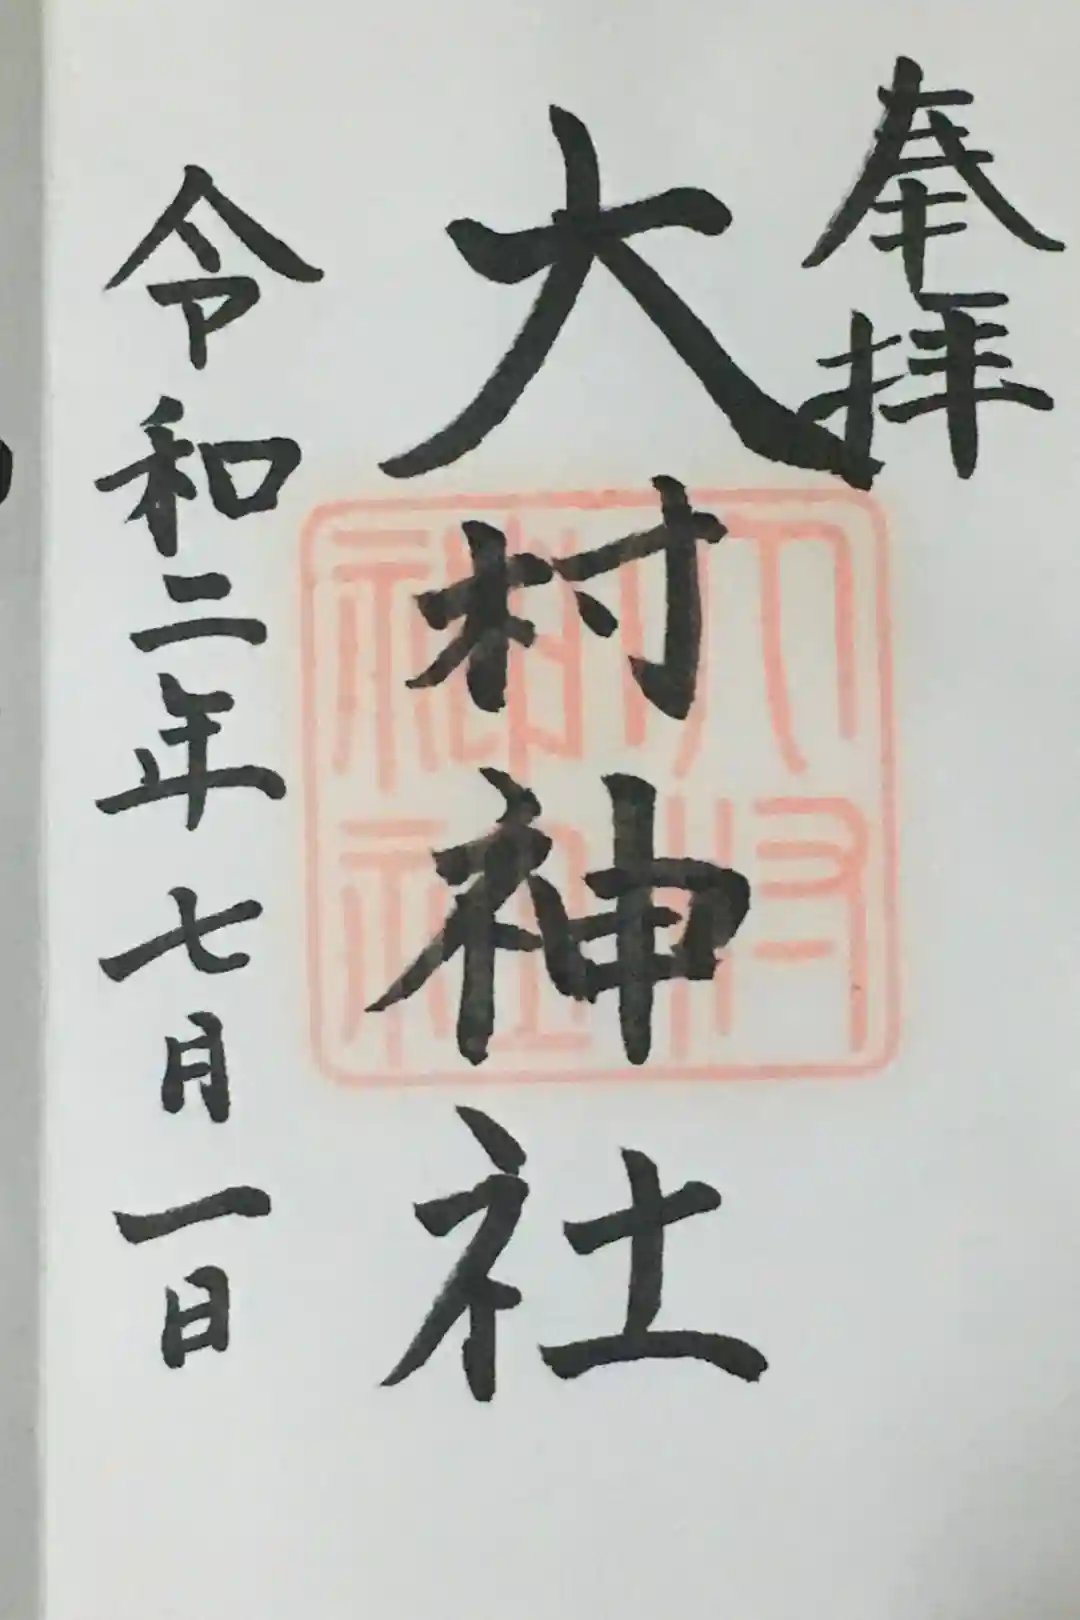 奉拝
大村神社
大村
神社
令和二年七月一日